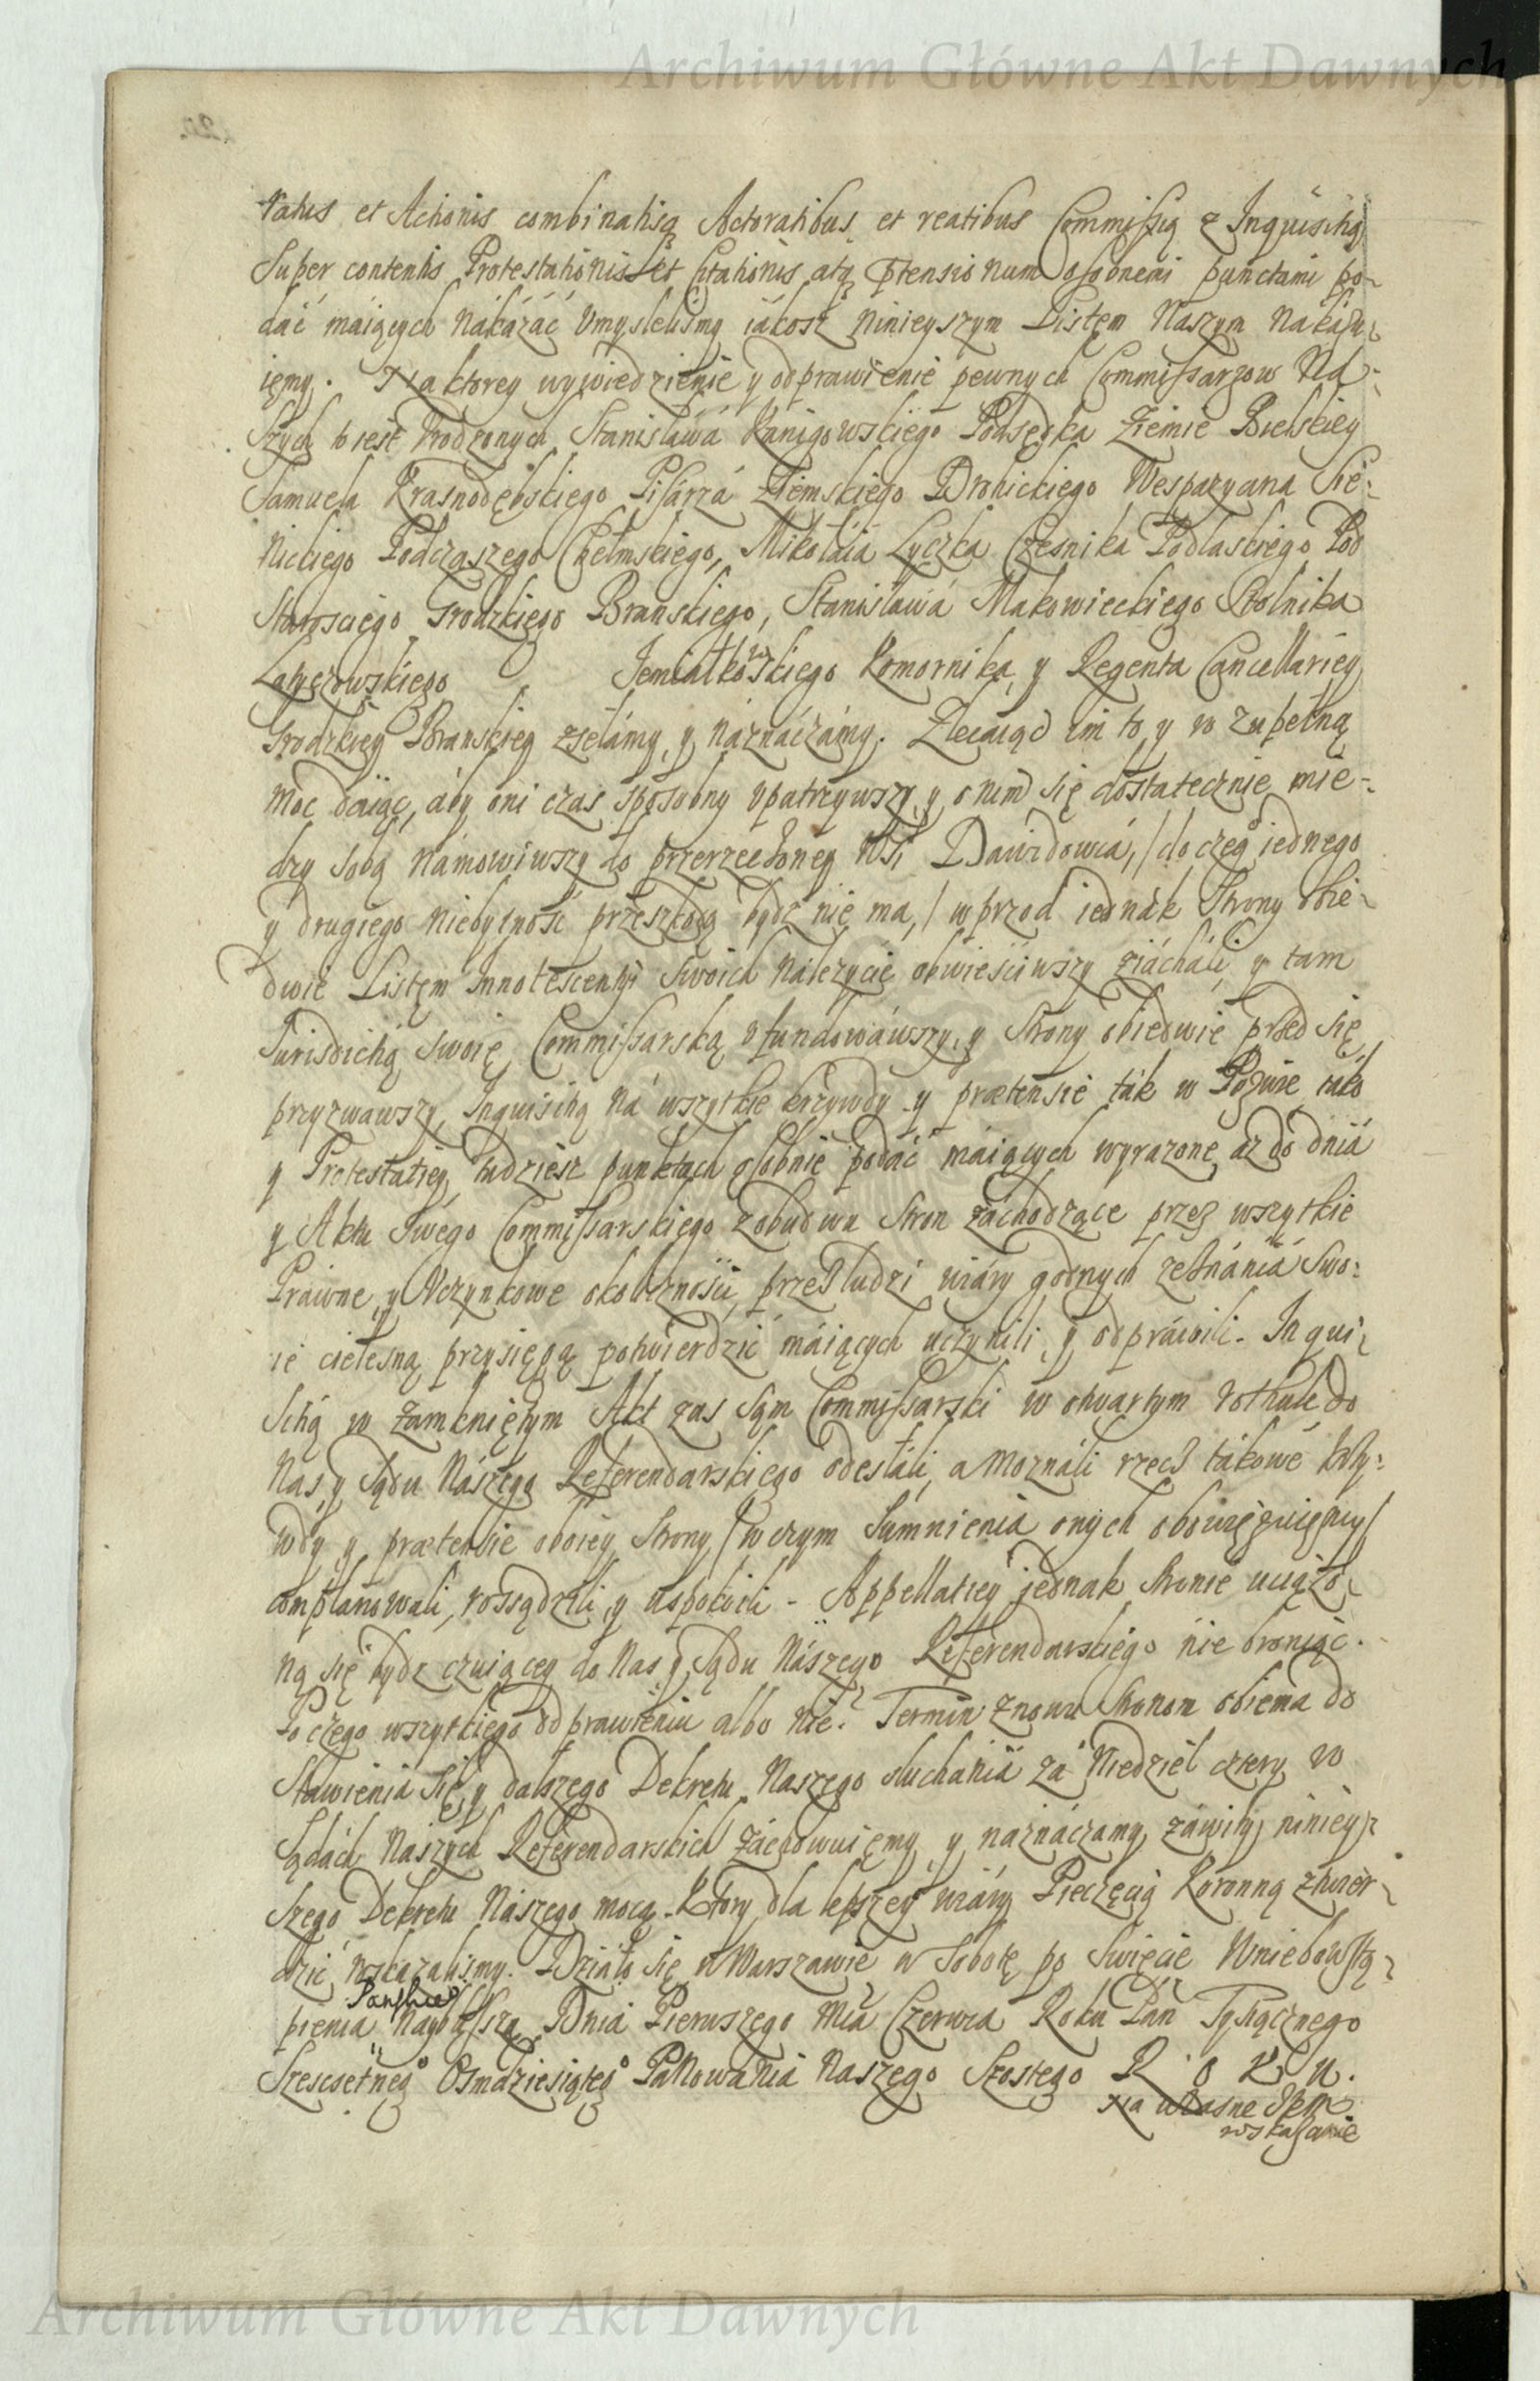 Archiwum Główne Akt Dawnych
ratus et Actionis combinatis Actoratibus et reatibus Commissią z Inquisitią
Super contentis Protestationis et Citationis atq ptensionum osobnemi punctami po-
dać máiących nákázáć Vmyslelismy iákosz ninieyszym Listęm Naszym nakázu-
ięmy. Na ktorey wywiedzięnie y odprawięnie pewnych Commissarzow Na-
szych to iest Vrodzonych Stanisława Kanigowskiego Podsędka Ziemie Bielskiey
Samuela Krasnodębskiego Pisárzá Ziemskiego Drohickiego Wespazyana Sie-
nickiego Podczaszego Chełmskiego, Mikołáiá Łyczka Cześnika Podlaskiego Pod
Starosciego Grodzkiego Branskiego, Stanisława Makowieckiego Stolnika
Latyczowskiego Jemiałkowskiego Komornika y Regenta Cancellariey
Grodzkiey Branskiey zsełámy y náznáczámy. Zlecaiąc im to y w zupełną
moc daiąc, áby oni czas sposobny vpatrzywszy y o nim się dostatecznie mie-
dzy sobą námowiwszy do przerzeczoney Wsi Dawidowá, / do czeg° iednego
y drugiego niebytność przeszkodą bydź nię ma, / wprzod iednák Strony obie-
dwie Listęm Innotescentyi Swoich nálezycię obwieściwszy ziácháli, y tam
Jurisdictią swoię Commissarską vfundowáwszy, y Strony obiedwie przed się
przyzwawszy, Inquisitią ná wszytkie krzywdy y prætensie ták w Pozwie iáko
y Protestátiey tudziesz punktach osobnie podáć máiących wyrazone, az do dniá
y Aktu Swego Commissarskiego z obudwu Stron záchodzące przez wszytkie
Práwne y Vczynkowe okolicznośći, przez ludzi wiáry godnych zeznániá swo-
ie cielesną przysięgą potwierdzić máiących uczynili y odpráwili. Inqui-
sitią w zámknięłym Akt zas sąm Commissarski w otwartym rothule do
Nas y Sądu Nászego Referendarskiego odesłáli, a moználi rzecz tákowe krzy-
wdy y prætensie oboiey Strony / w czym Sumnienia onych obowięzuięmy /
complanowali, rossądzili y uspokoili. Appellatiey jednak stronie uciązo-
ną się bydz czuiącey do Nas y Sądu Nászego Referendarskiego nie broniąc.
Po czego wszytkiego odprawieniu albo nie. Termin znowu Stronom obiema do
stawienia się y dalszego Dekretu Naszego słuchania zá Niedziel cztery w
Sądách Nászych Referendarskich záchowuięmy y náznáczamy, záwity niniey-
szego Dekretu Nászego mocą. Ktory dla lepszey wiáry Pieczęcią Koronną ztwier-
dzić roskazalismy. Działo się w Warszawie w Sobotę po Swięcie Wniebowstą-
pienia Panskiego Dnia Pierwszego Mca Czerwca Roku Pań Tysiącznego
Szescsetneg° Osmdziesiąteg° Panowania Naszego Szostego ROKU.
Na własne JKM
wskazanie
Archiwum Główne Akt Dawnych